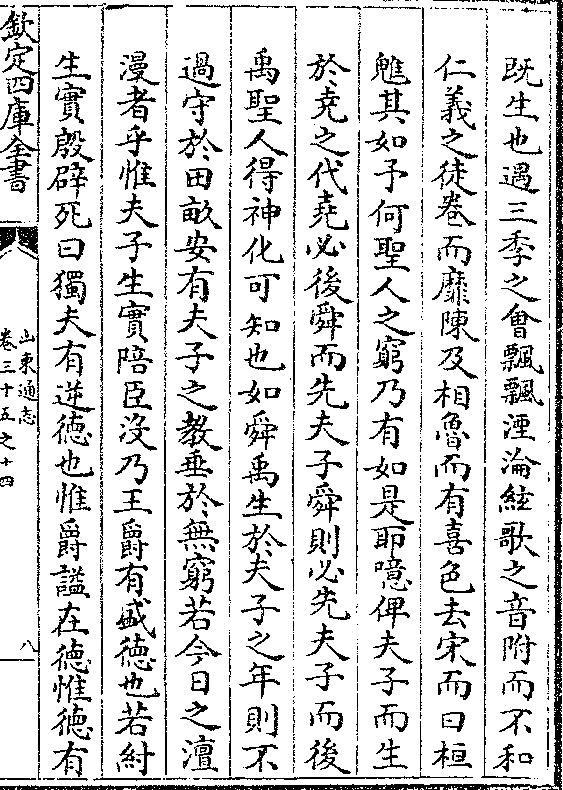 既生也遇三季之會飄飄湮淪絃歌之音附而不和
仁義之徒卷而靡陳及相魯而有喜色去宋而曰桓
魋其如予何聖人之窮乃有如是耶噫俾夫子而生
於堯之代堯必後舜而先夫子舜則必先夫子而後
禹聖人得神化可知也如舜禹生於夫子之年則不
過守於田畝安有夫子之教垂於無窮若今日之澶
漫者乎惟夫子生實陪臣沒乃王爵有盛德也若紂
生實殷辟死曰獨夫有逆德也惟爵謚在德惟德有
欽定四庫全書
山東通志
卷三十五之十四
八